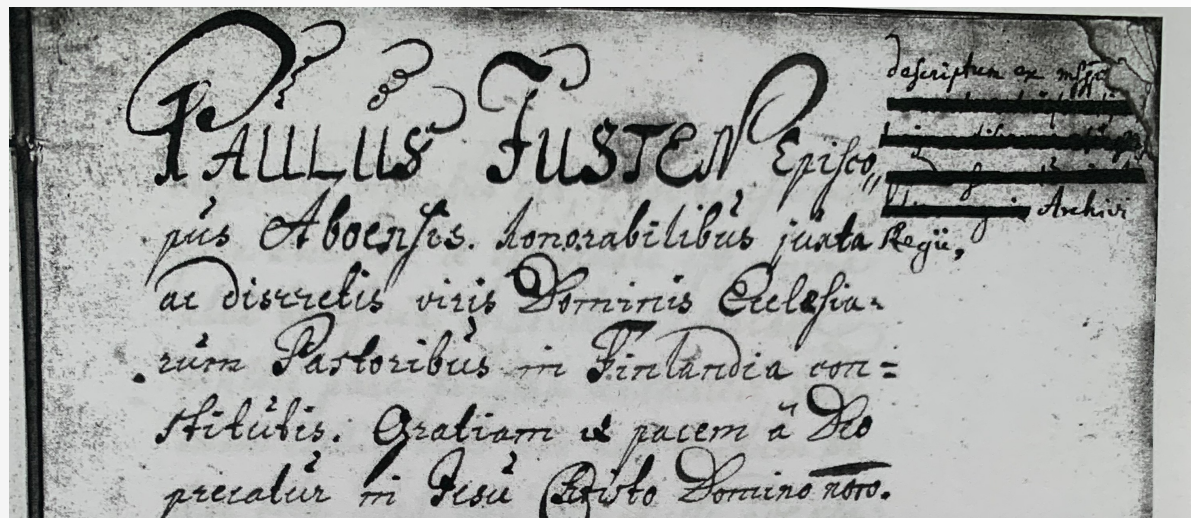 PAULUS JUSTEN Episco„
pus Aboensis. honorabilibus juxta
ac discretis viris Dominis Ecclesia=
rum Pastoribus in Finlandia con=
stitutis. Gratiam et pacem â Deo
precatur in Jesu Christo Domino nr̄o.
descriptum ex msst
Archivi
Regii,